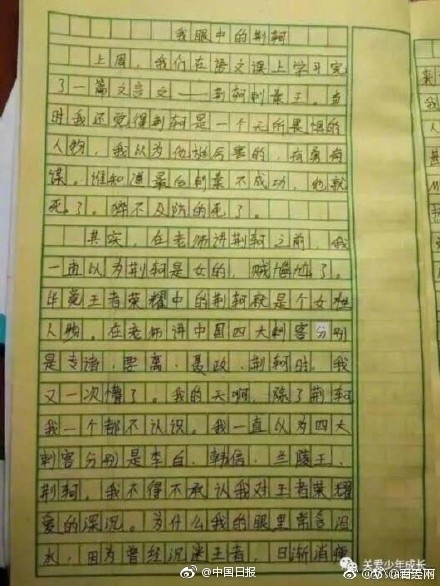 我眼中的荆轲
上周，我们在语文课上学习完
了一篇文言文——荆轲刺秦王。当
时我还觉得荆轲是一个无所畏惧的
人物，我以为他挺厉害的，有勇有
谋。谁知道最后刺秦不成功，他就
死了。猝不及防的死了。
其实，在老师讲荆轲之前，我
一直以为荆轲是女的，贼尴尬了。
毕竟王者荣耀中的荆轲就是个女性
人物。在老师讲中国四大刺客分别
是专诸、要离、聂政、荆轲时，我
又一次懵了。我的天啊，除了荆轲
我一个都不认识。我一直以为四大
刺客分别是李白、韩信、兰陵王、
荆轲。我不得不承认我对王者荣耀
爱的深沉。为什么我的眼里常含泪
水，因为曾经沉迷王者，日渐消瘦
关爱少年成长
@中国日报